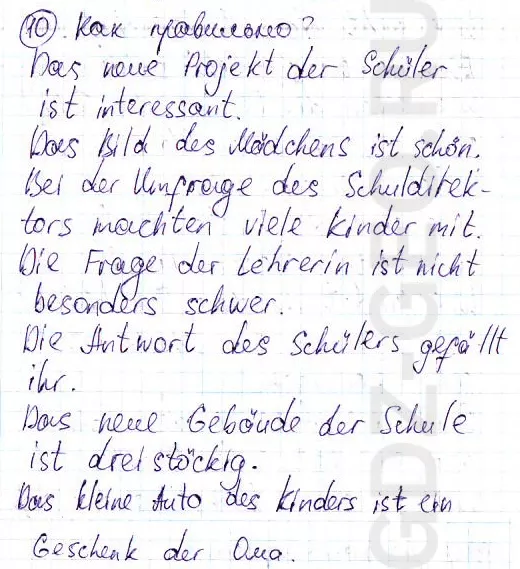 10. Как правильно?
Das neue Projekt der Schüler
ist interessant.
Das Bild des Mädchens ist schön.
Bei der Umfrage des Schuldirek-
tors machten viele Kinder mit.
Die Frage der Lehrerin ist nicht
besonders schwer.
Die Antwort des Schülers gefällt
ihr.
Das neue Gebäude der Schule
ist dreistöckig.
Das kleine Auto des Kinders ist ein
Geschenk der Oma.
GDZ-GEO.RU